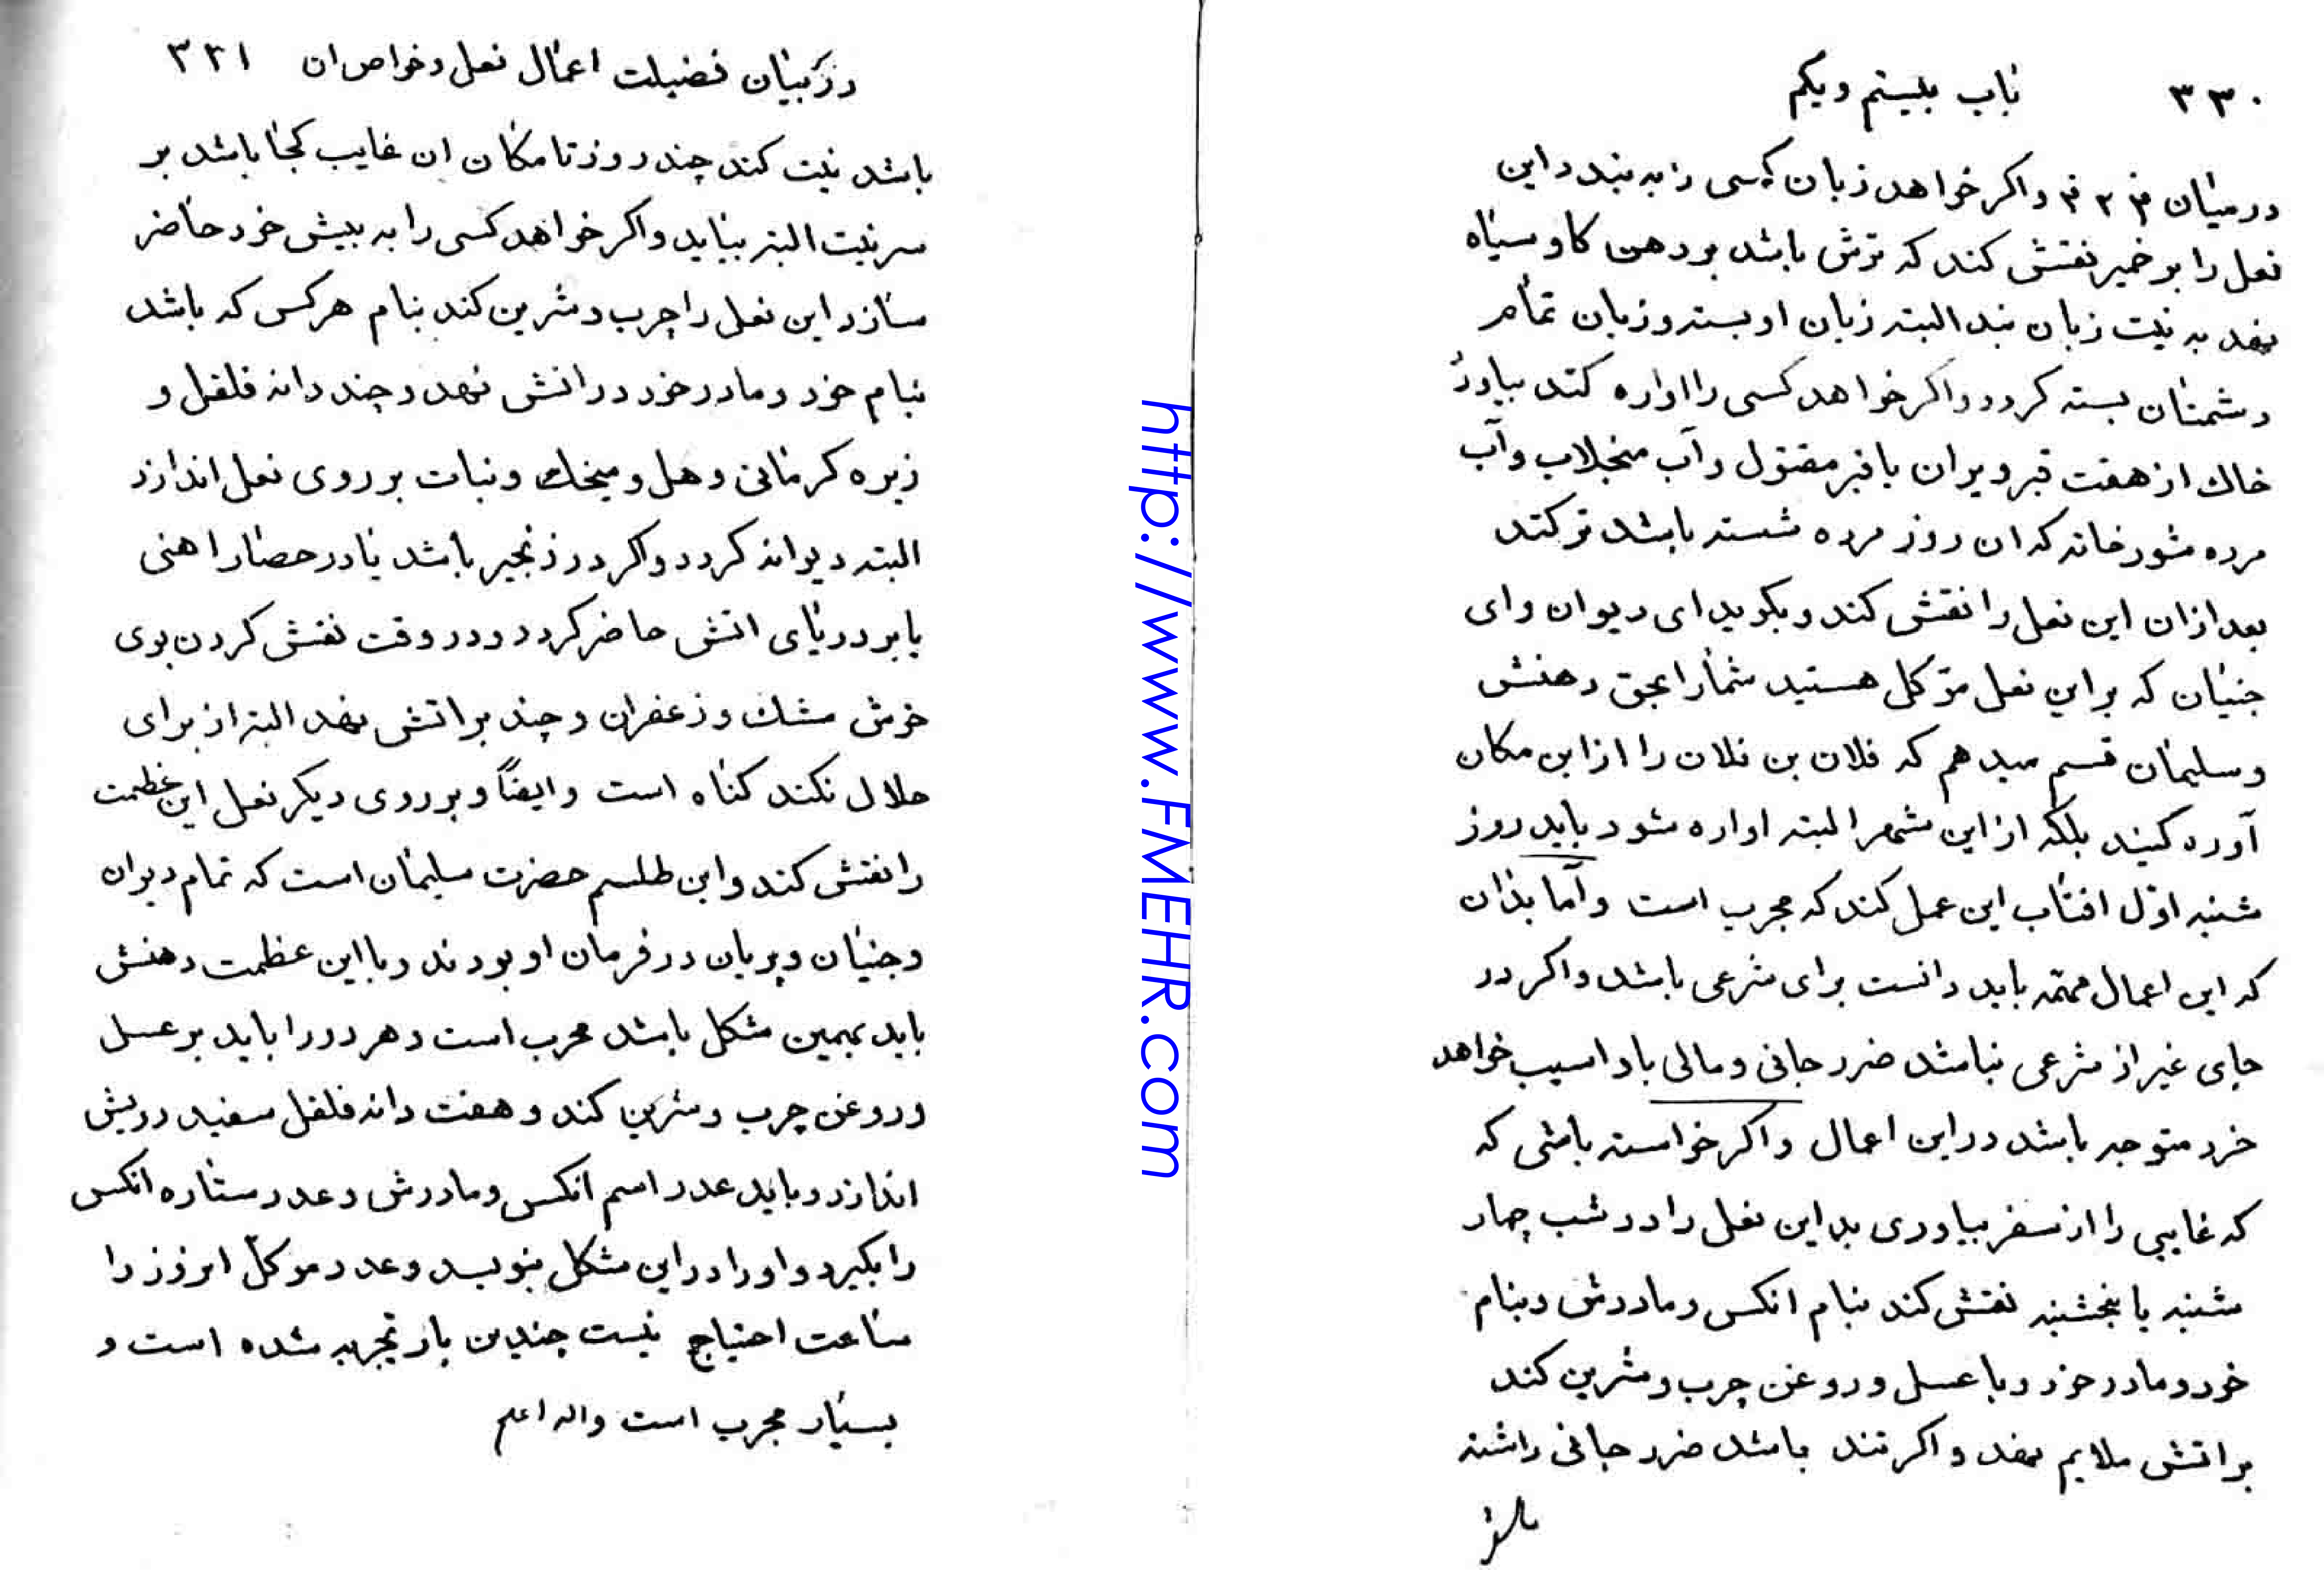 ۳۳۰ باب بیستم ویکم
درمیان ۳ ۲ ۳ واکر خواهد زبان کسی را به بندد این
نعل را بر خمیر نقش کند که ترش باشد بر دهن کاو سیاه
نهد به نیت زبان بند البته زبان او بسته و زبان تمام
دشمنان بسته کردد واکر خواهد کسی را اواره کند بیاورد
خاك از هفت قبر ویران با قبر مقتول و آب منجلاب و آب
مرده شور خانه که ان روز مرده شسته باشد تر کند
بعد از ان این نعل را نقش کند و بکوید ای دیوان و ای
جنیان که بر این نعل موکل هستید شما را بحق دهنش
و سلیمان قسم میدهم که فلان بن فلان را از این مکان
آورده کنید بلکه از این شهر البته اواره شود باید روز
شنبه اول افتاب این عمل کند که مجرب است و آما بدان
که این اعمال مهمه باید دانست برای شرعی باشد واکر در
جای غیر از شرعی نباشد ضرر جانی و مالی باو اسیب خواهد
خرد متوجه باشد در این اعمال واکر خواسته باشی که
که غایبی را از سفر بیاوری بد این نعل را در شب چهار
شنبه یا پنجشنبه نقش کند بنام انکس و مادرش و بنام
خود و مادر خود و با عسل و روغن چرب و شرین کند
بر اتش ملایم نهد و اکر تند باشد ضرر جانی داشته
در بیان فضیلت اعمال نعل و خواص ان ۳۳۱
باشد نیت کند چند روز تا مکان ان غایب کجا باشد بر
سر نیت البته بیاید واکر خواهد کسی را به پیش خود حاضر
سازد این نعل را چرب و شرین کند بنام هر کس که باشد
بنام خود و مادر خود در اتش نهد و چند دانه فلفل و
زیره کرمانی و هل و میخك و نبات بر روی نعل اندازد
البته دیوانه کردد واکر در زنجیر باشد یا در حصار اهنی
یا بر دریای اتش حاضر کردد و در وقت نقش کردن بوی
خوش مشك و زعفران و چند بر اتش نهد البته از برای
حلال نکند کناه است و ایضاً و بر روی دیکر نعل این عظمت
را نقش کند و این طلسم حضرت سلیمان است که تمام دیوان
و جنیان و پریان در فرمان او بودند و با این عظمت دهنش
باید بهمین مشکل باشد مجرب است و هر دو را باید بر عسل
و روغن چرب و شرین کند و هفت دانه فلفل سفید رویش
اندازد و باید عدد اسم انکس و مادرش و عدد ستاره انکس
را بکیرد و او را در این مشکل بنویسد و عدد موکل انروز را
ساعت احتیاج نیست چندین بار تجربه شده است و
بسیار مجرب است واله اعلم
http://www.FMEHR.com